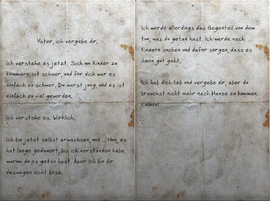 Vater, ich vergebe dir.
Ich verstehe es jetzt. Sich um Kinder zu
kümmern, ist schwer, und für dich war es
einfach zu schwer. Du warst jung, und es ist
einfach zu viel geworden.
Ich verstehe es. Wirklich.
Ich bin jetzt selbst erwachsen, und es
hat lange gedauert, bis ich verstanden habe,
warum du es getan hast. Aber ich bin dir
deswegen nicht böse.
Ich werde allerdings das Gegenteil von dem
tun, was du getan hast. Ich werde nach
Kindern suchen und dafür sorgen, dass es
ihnen gut geht.
Ich hab dich lieb und vergebe dir, aber du
brauchst nicht mehr nach Hause zu kommen.